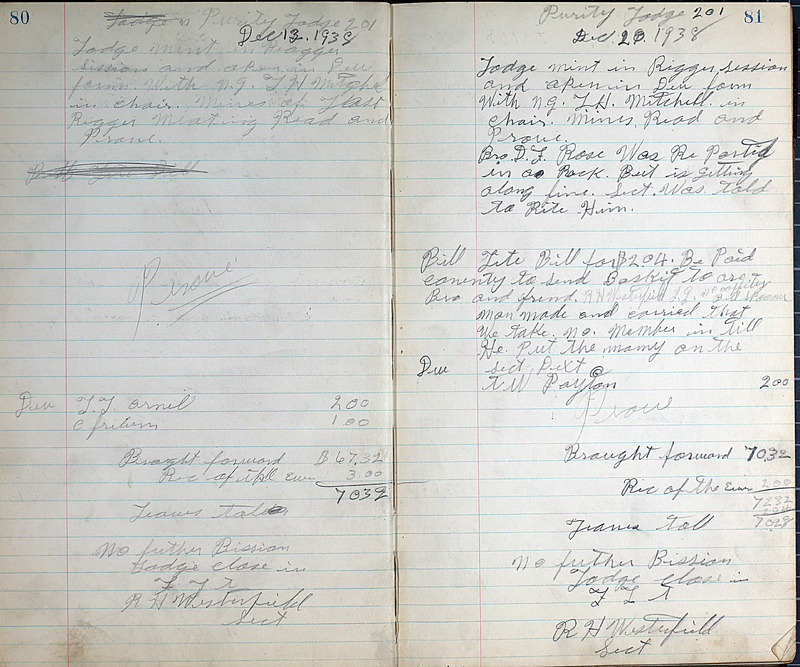 80
Purity Lodge 201
Dec 13. 1938
Lodge mint in Rigger
session and open in Due
form. With N.G. T.H. Mitchel
in chair. Mines of Last
Rigger Meating Read and
Prove.
Prove
Due T.J. Ornil 200
100
Brought forward $67.32
Rec of the Eve 3.00
7032
Leaves total
No futher Bission
Lodge close in
F L T
R H Westerfield
Sect
81
Purity Lodge 201
Dec. 20. 1938
Lodge mint in Rigger session
and open in Due form
With N.G. T.H. Mitchell in
chair. Mines. Read and
Prove.
Bro D.F. Rose Was Re Ported
in a Rock. But is getting
along fine. Sect. Was Told
to Rite Him.
Bill Lite Bill for $204. Be Paid
comenty to send Baskit to are
Bro and frend. R H Westerfield
mon made and carried that
We take. no. Member in till
He. Put the mony on the
Due sect. Dext
T.W Payton 200
Prove
Brought forward 7032
Rec of the Eve 200
7232
204
Leaves Toll 7028
No futher Bission
Lodge close in
F L T
R H Westerfield
Sect